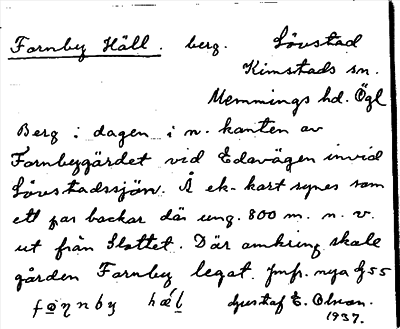 Fornby Häll. berg. Lövstad
Kimstads sn.
Memmings hd. Ögl
Berg i dagen i n. kanten av
Fornbygärdet vid Edavägen invid
Lövstadssjön. Å ek-kart synes som
ett par backar där ung. 800 m. n. v.
ut från Slottet. Där omkring skale
gården Fornby legat. Jmf. nya
Gustaf E. Olson.
1937.